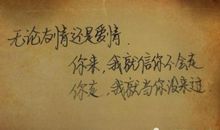 无论友情还是爱情.
你来,我就信你不会走
你走,我就当你没来过